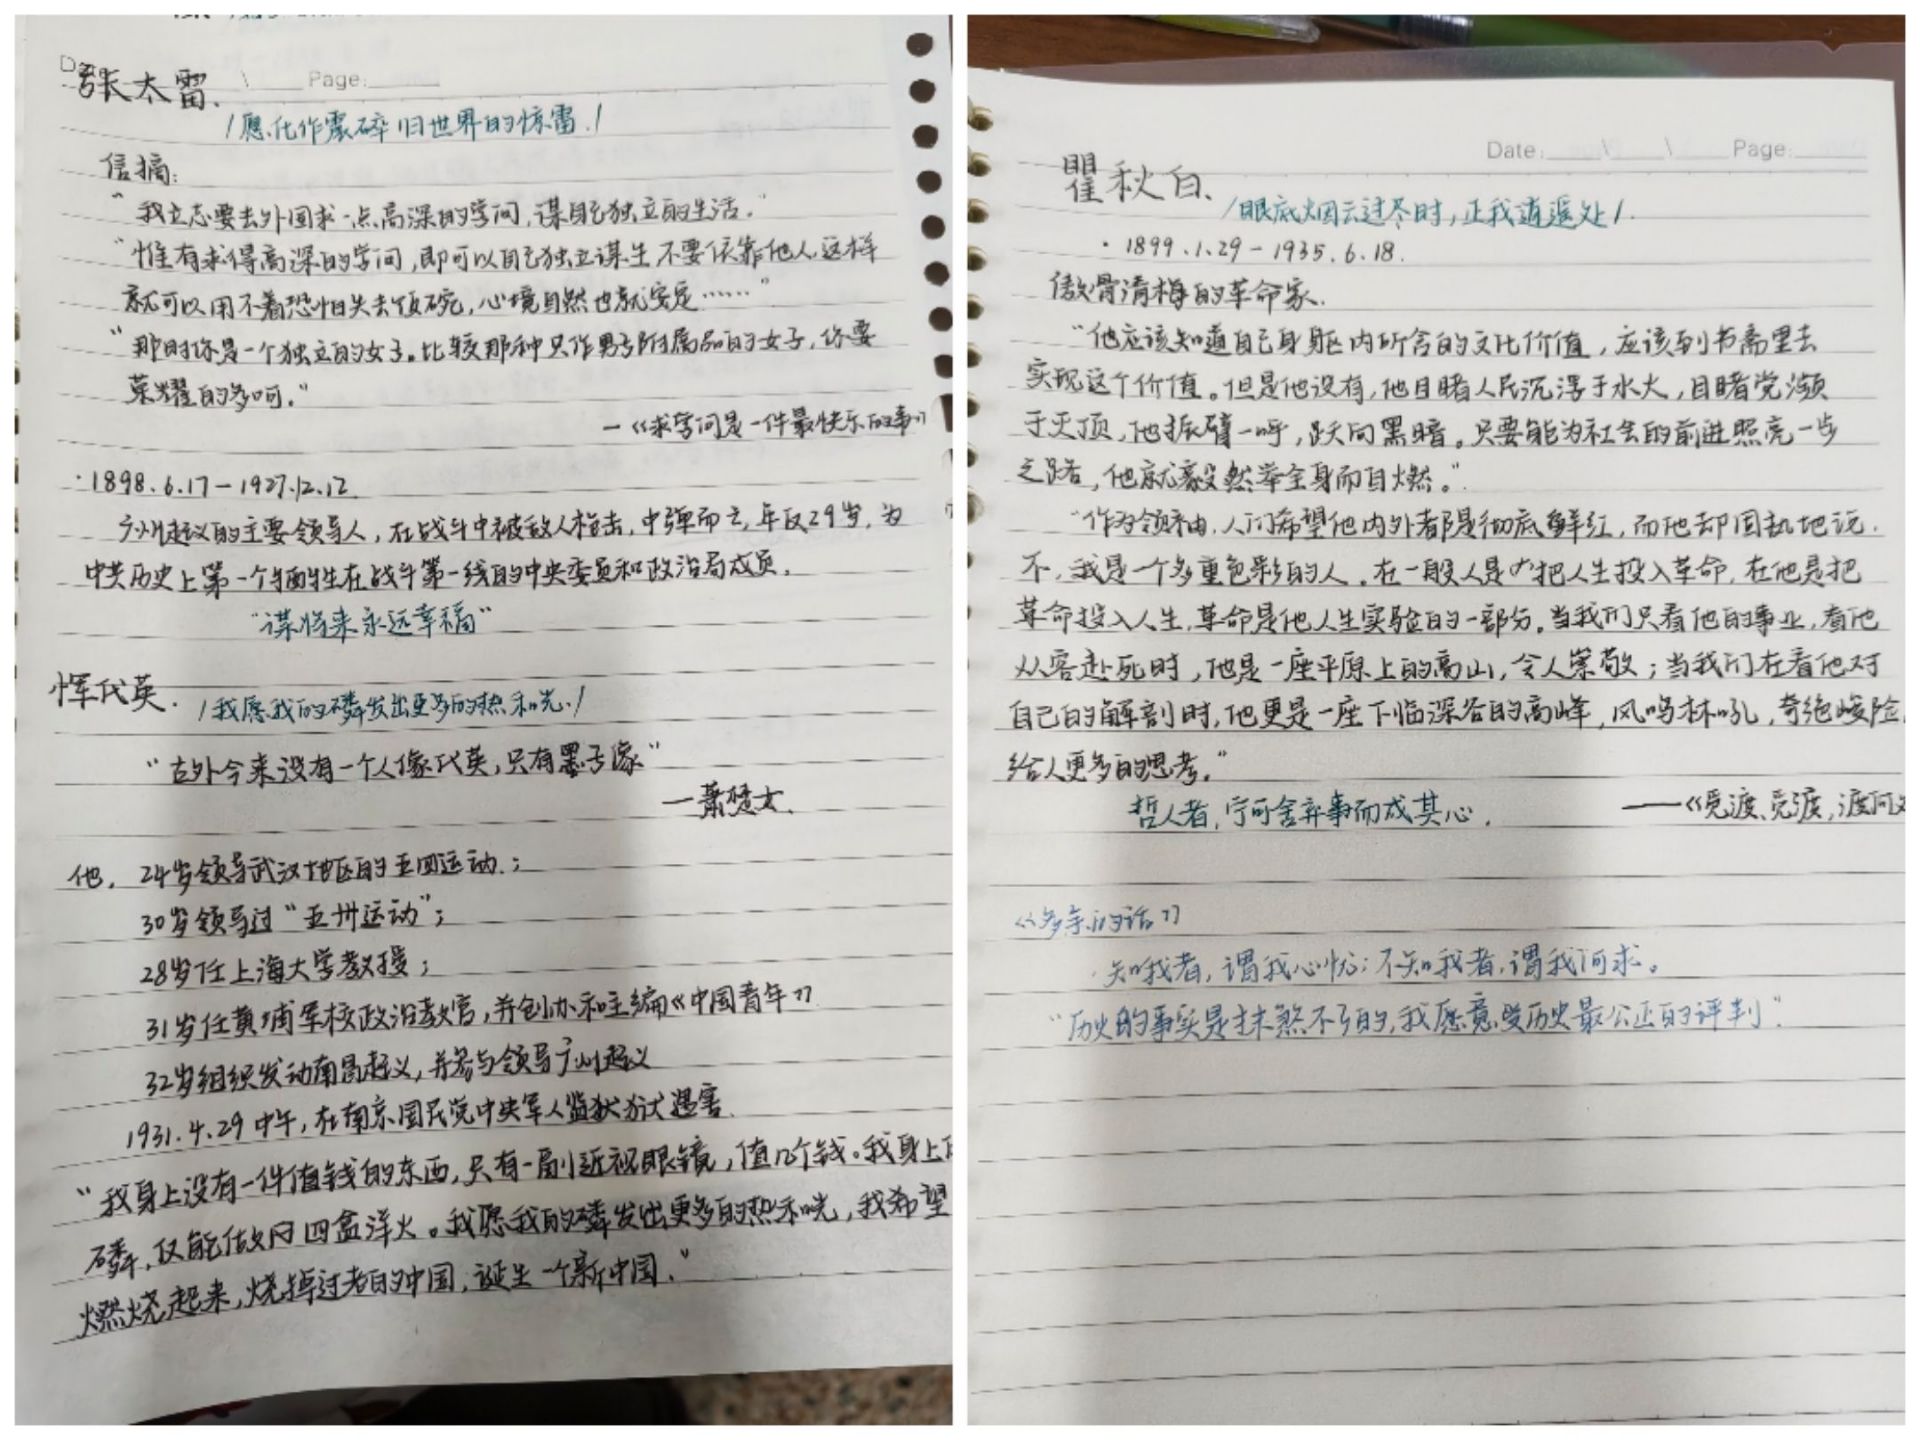 张太雷.
Page:
/愿化作震碎旧世界的惊雷./
信摘:
“我立志要去外国求一点高深的学问,谋自己独立的生活.”
“惟有求得高深的学问,即可以自己独立谋生,不要依靠他人,这样
就可以用不着恐怕失去饭碗,心境自然也就安定……”
“那时你是一个独立的女子。比较那种只作男子附属品的女子,你要
荣耀的多呵.”
—《求学问是一件最快乐的事》
·1898.6.17-1927.12.12
广州起义的主要领导人,在战斗中被敌人枪击,中弹而亡,年仅29岁,为
中共历史上第一个牺牲在战斗第一线的中央委员和政治局成员.
“谋将来永远幸福”
恽代英.
/我愿我的磷发出更多的热和光./
“古外今来没有一个人像代英,只有墨子像”
—萧楚女.
他. 24岁领导武汉地区的五四运动.;
30岁领导过“五卅运动”;
28岁任上海大学教授;
31岁任黄埔军校政治教官,并创办和主编《中国青年》
32岁组织发动南昌起义,并参与领导广州起义
1931.4.29中午,在南京国民党中央军人监狱遇害.
“我身上没有一件值钱的东西,只有一副近视眼镜,值几个钱。我身上
磷,仅能做四盒洋火。我愿我的磷发出更多的热和光,我希望
燃烧起来,烧掉过老的中国,诞生一个新中国.”
Date: \ \ Page:
瞿秋白.
/眼底烟云过尽时,正我逍遥处/.
·1899.1.29-1935.6.18.
傲骨清梅的革命家.
“他应该知道自己身躯内所含的文化价值,应该到书斋里去
实现这个价值。但是他没有,他目睹人民沉浮于水火,目睹党濒
于灭顶,他振臂一呼,跃向黑暗。只要能为社会的前进照亮一步
之路,他就毅然举全身而自燃。”
“作为领袖,人们希望他内外都是彻底鲜红,而他却固执地说.
不,我是一个多重色彩的人.在一般人是把人生投入革命,在他是把
革命投入人生,革命是他人生实验的一部分.当我们只看他的事业,看他
从容赴死时,他是一座平原上的高山,令人崇敬;当我们在看他对
自己的解剖时,他更是一座下临深谷的高峰,风鸣林吼,奇绝峻险,
给人更多的思考。”
哲人者,宁可舍弃事而成其心. ——《觅渡、觅渡,渡何
《多余的话》
·知我者,谓我心忧;不知我者,谓我何求。
“历史的事实是抹煞不了的,我愿意受历史最公正的评判”.